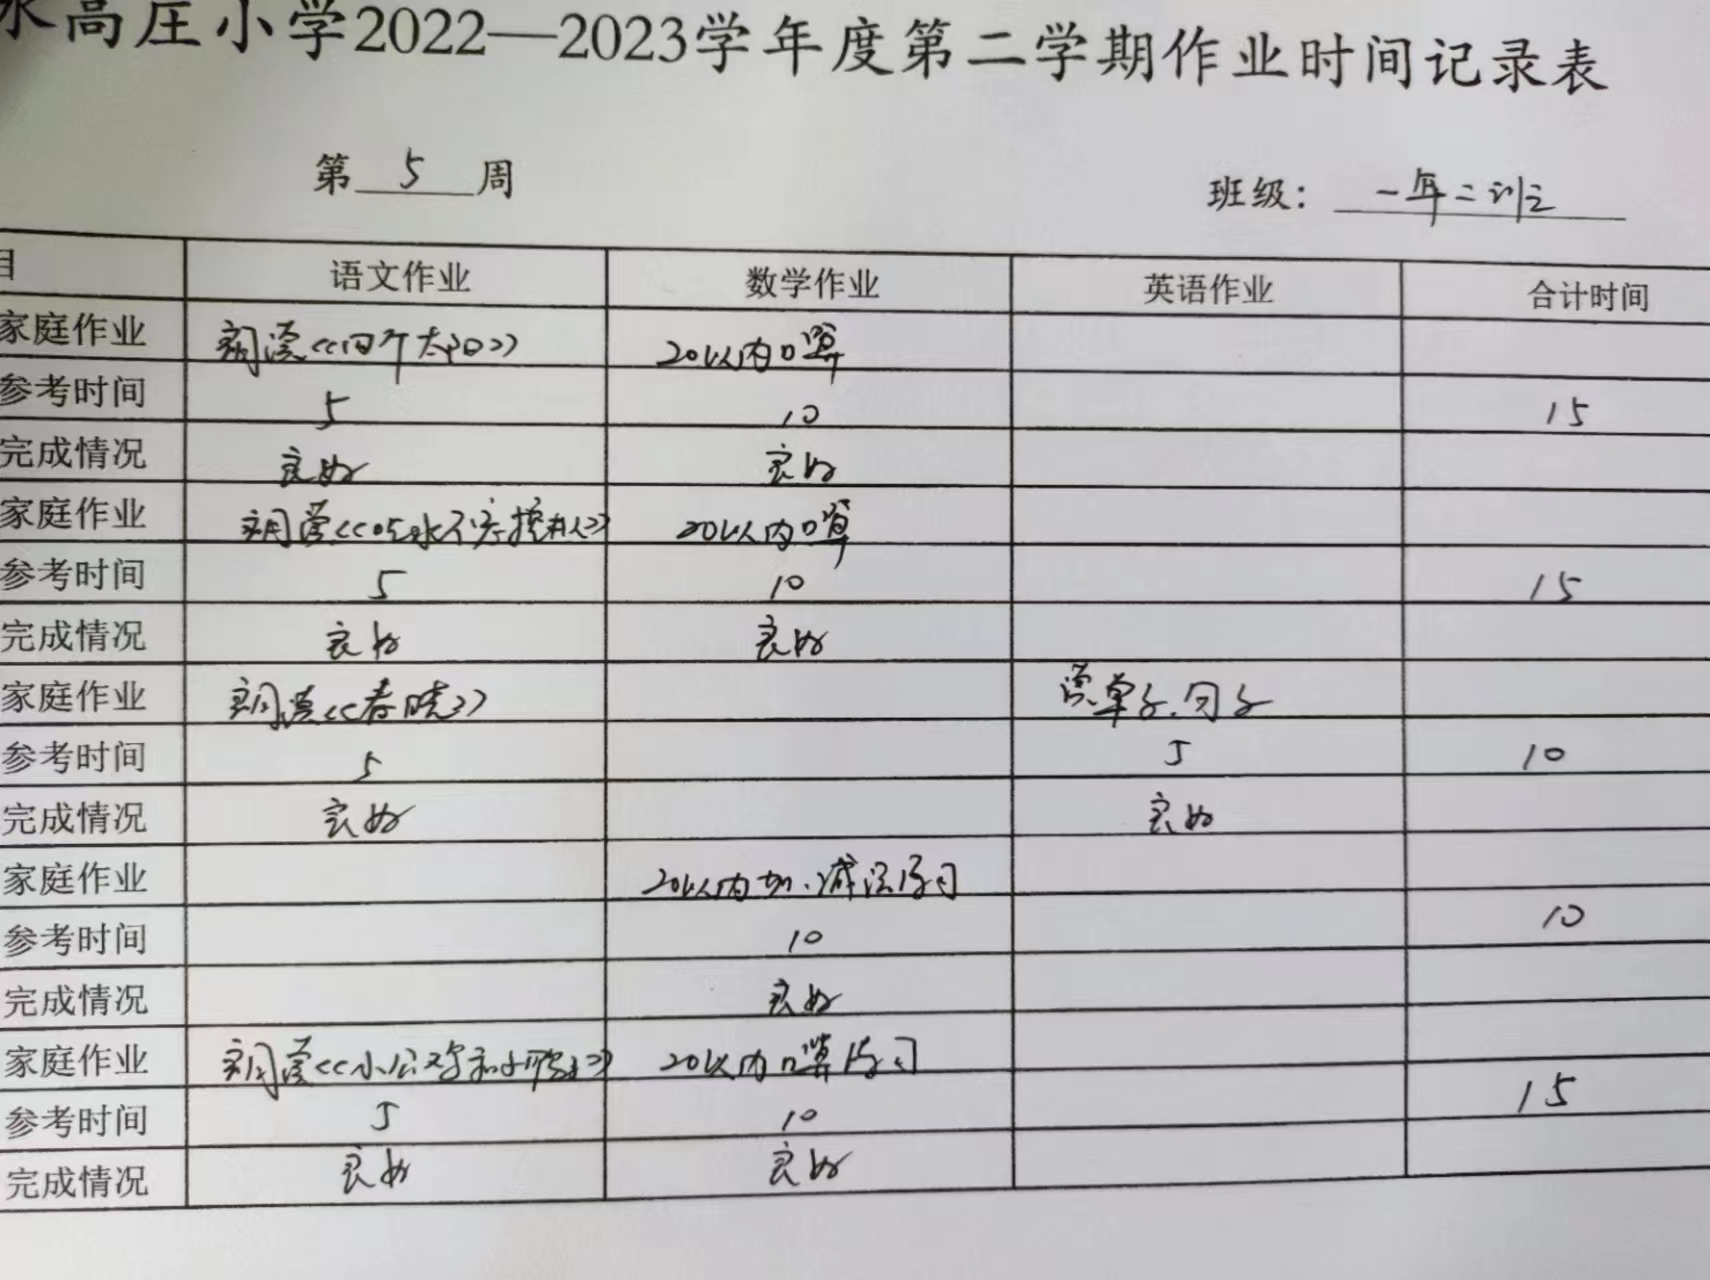 水高庄小学2022—2023学年度第二学期作业时间记录表
第 5 周 班级： 一年二班
目 语文作业 数学作业 英语作业 合计时间
家庭作业 朗读《四个太阳》 20以内口算
参考时间 5 10 15
完成情况 良好 良好
家庭作业 朗读《吃水不忘挖井人》 20以内口算
参考时间 5 10 15
完成情况 良好 良好
家庭作业 朗读《春晓》 读单子、句子
参考时间 5 5 10
完成情况 良好 良好
家庭作业 20以内加、减法练习
参考时间 10 10
完成情况 良好
家庭作业 朗读《小公鸡和小鸭子》 20以内口算练习
参考时间 5 10 15
完成情况 良好 良好